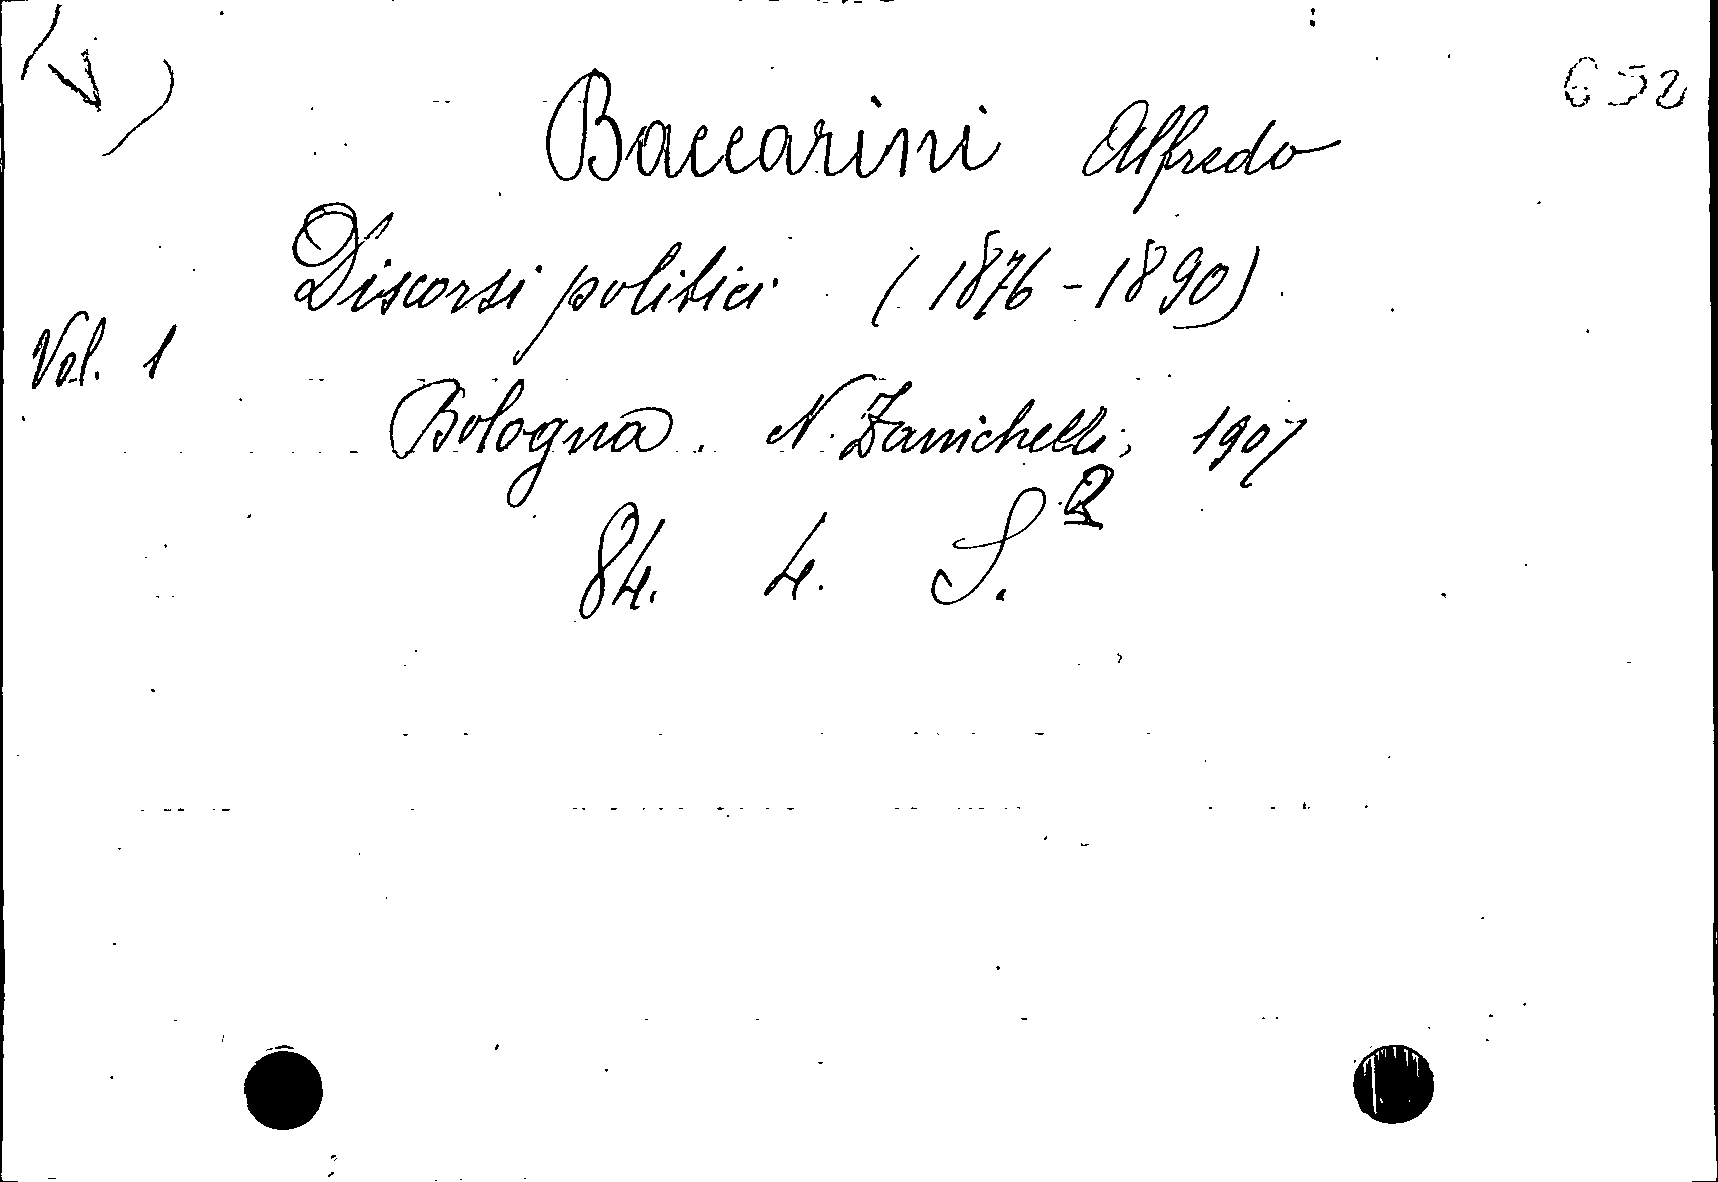 (V)
652
Baccarini Alfredo
Discorsi politici (1876-1890)
Vol. 1
Bologna. N. Zanichelli, 1907
84. 4. S. 2